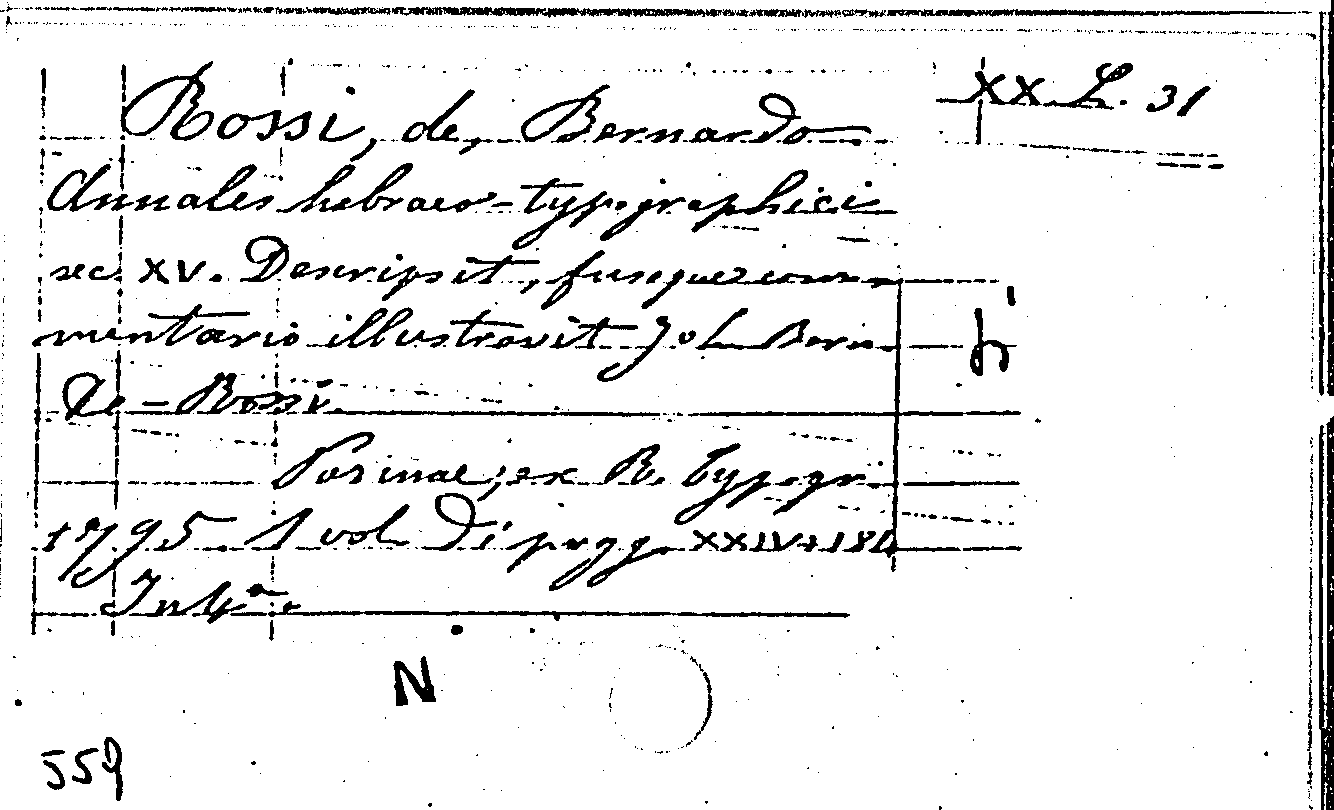 Rossi, de, Bernardo
XX. L. 31
Annales hebraeo-typographici
sec. XV. Descripsit, fusoque com-
mentario illustravit Joh. Bern.
De-Rossi.
Parmae, ex R. typogr.
1795. 1 vol. di pagg. XXIV+184
In 4°.
N
559